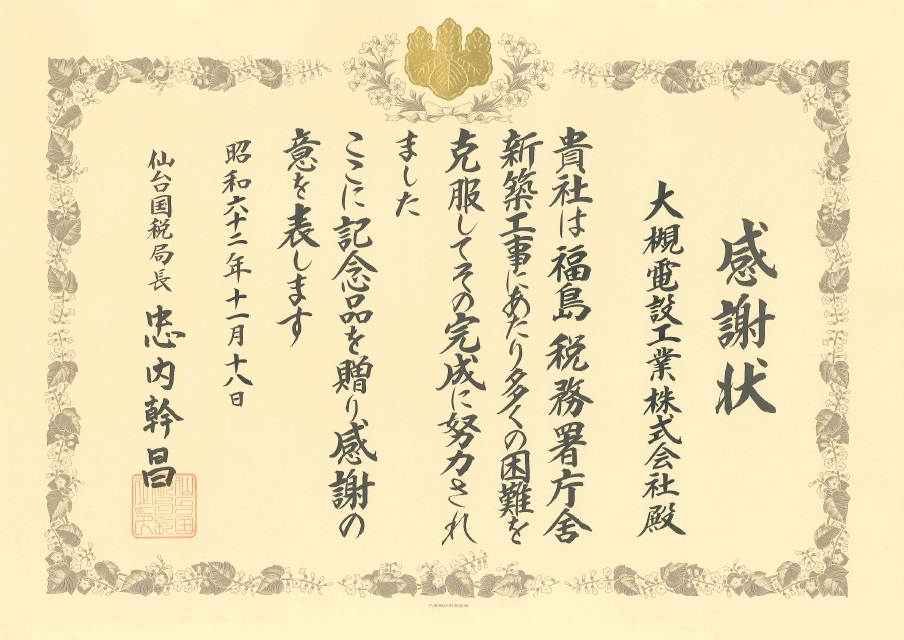 感謝状
大槻電設工業株式会社殿
貴社は福島税務署庁舎
新築工事にあたり多くの困難を
克服してその完成に努力され
ました
ここに記念品を贈り感謝の
意を表します
昭和六十二年十一月十八日
仙台国税局長 忠内幹昌